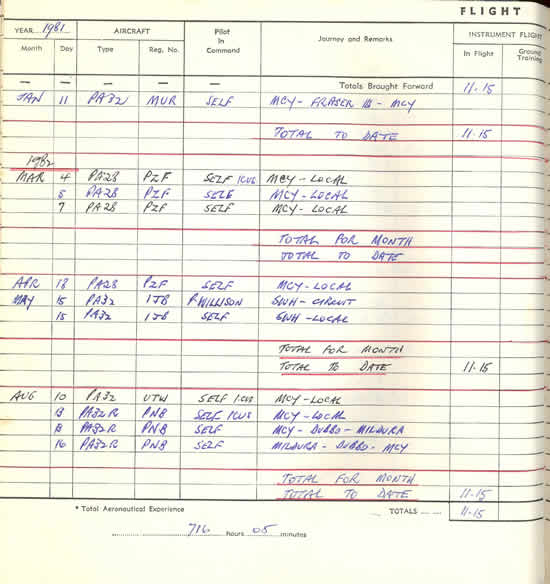 FLIGHT
YEAR 1981 AIRCRAFT Pilot In Command Journey and Remarks INSTRUMENT FLIGHT
Month Day Type Reg. No. In Flight Ground Training
— — — — — Totals Brought Forward 11-15
JAN 11 PA32 MUR SELF MCY - FRASER IS - MCY
TOTAL TO DATE 11-15
1982
MAR 4 PA28 PZF SELF ICUS MCY - LOCAL
5 PA28 PZF SELF MCY - LOCAL
7 PA28 PZF SELF MCY - LOCAL
TOTAL FOR MONTH
TOTAL TO DATE
APR 18 PA28 PZF SELF MCY - LOCAL
MAY 15 PA32 IJB P WILLISON SWH - CIRCUIT
15 PA32 IJB SELF SWH - LOCAL
TOTAL FOR MONTH
TOTAL TO DATE 11-15
AUG 10 PA32 UTW SELF ICUS MCY - LOCAL
13 PA32R PNB SELF ICUS MCY - LOCAL
13 PA32R PNB SELF MCY - DUBBO - MILDURA
16 PA32R PNB SELF MILDURA - DUBBO - MCY
TOTAL FOR MONTH
TOTAL TO DATE 11-15
* Total Aeronautical Experience TOTALS ...... 11-15
716 hours 05 minutes